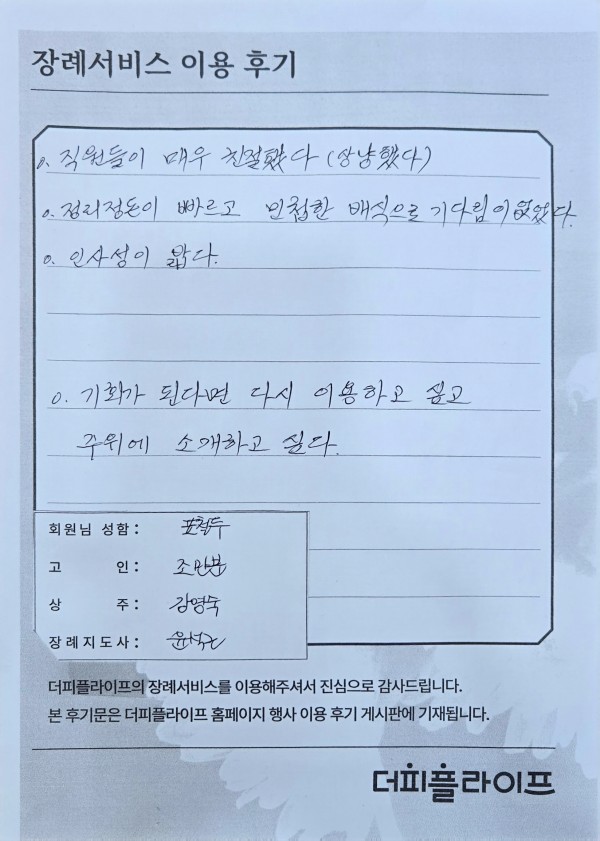 장례서비스 이용 후기
o. 직원들이 매우 친절했다 (상냥했다)
o. 정리정돈이 빠르고 민첩한 배식으로 기다림이 없었다.
o. 인사성이 밝다.
o. 기회가 된다면 다시 이용하고 싶고
주위에 소개하고 싶다.
회원님 성함 : 표철두
고 인 : 조만분
상 주 : 김영숙
장례지도사 :
더피플라이프의 장례서비스를 이용해주셔서 진심으로 감사드립니다.
본 후기문은 더피플라이프 홈페이지 행사 이용 후기 게시판에 기재됩니다.
더피플라이프